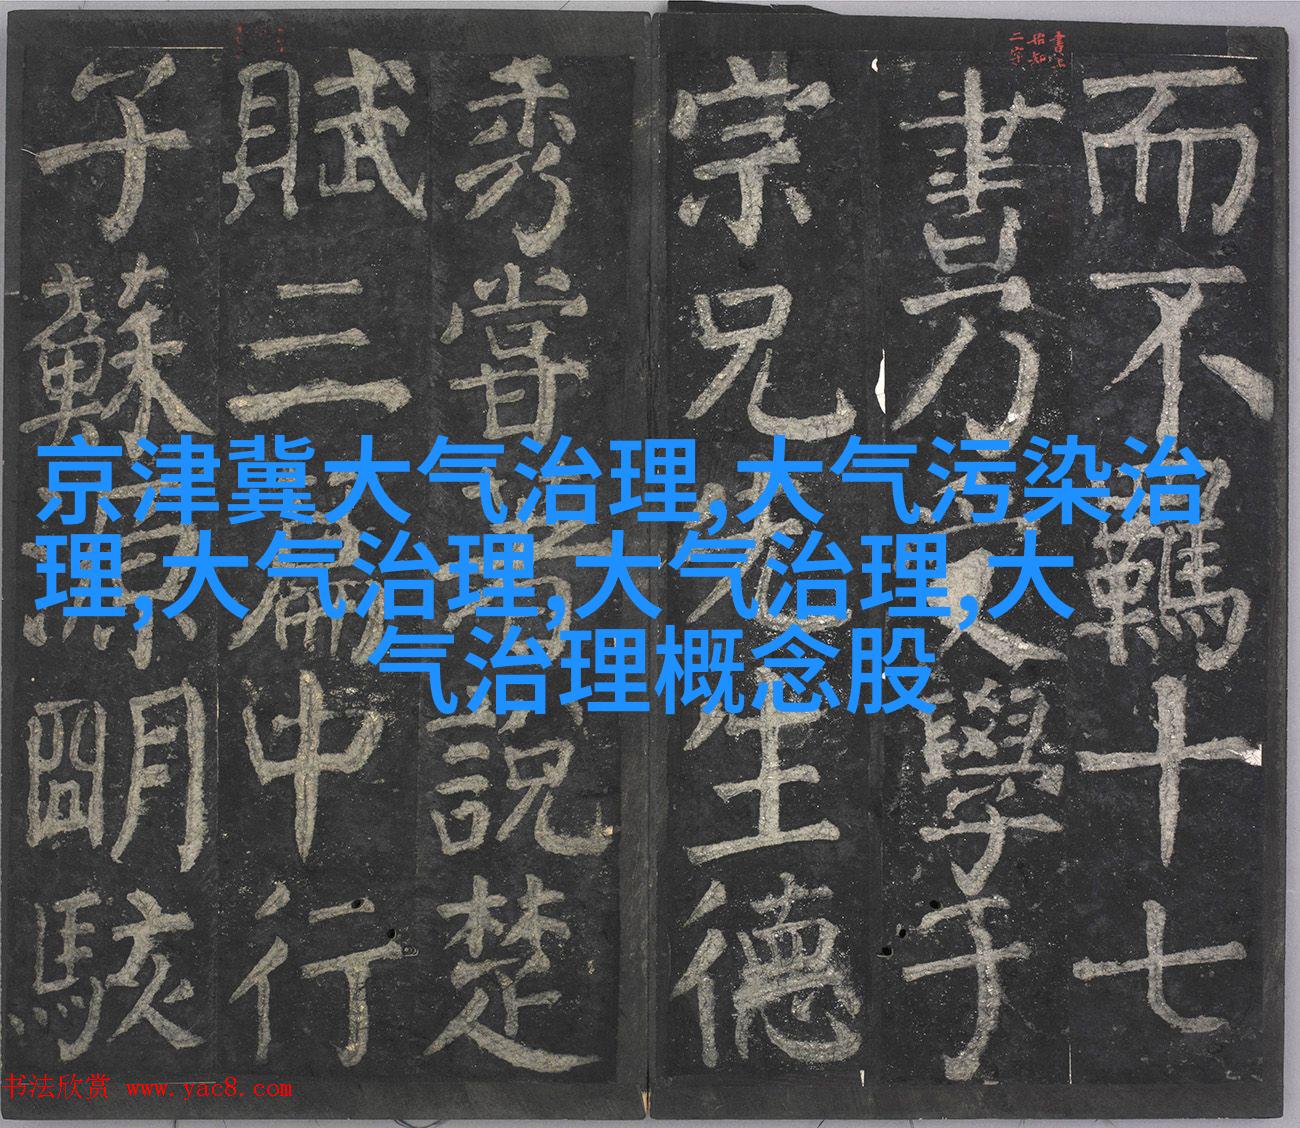 而不羈十七
書乃文學于
宗兄先生德
秀嘗著說楚
賦三篇中行
子蘇源明駭
京津冀大气治理,大气污染治
理,大气治理,大气治理,大
气治理概念股
书法欣赏 www.yac8.com